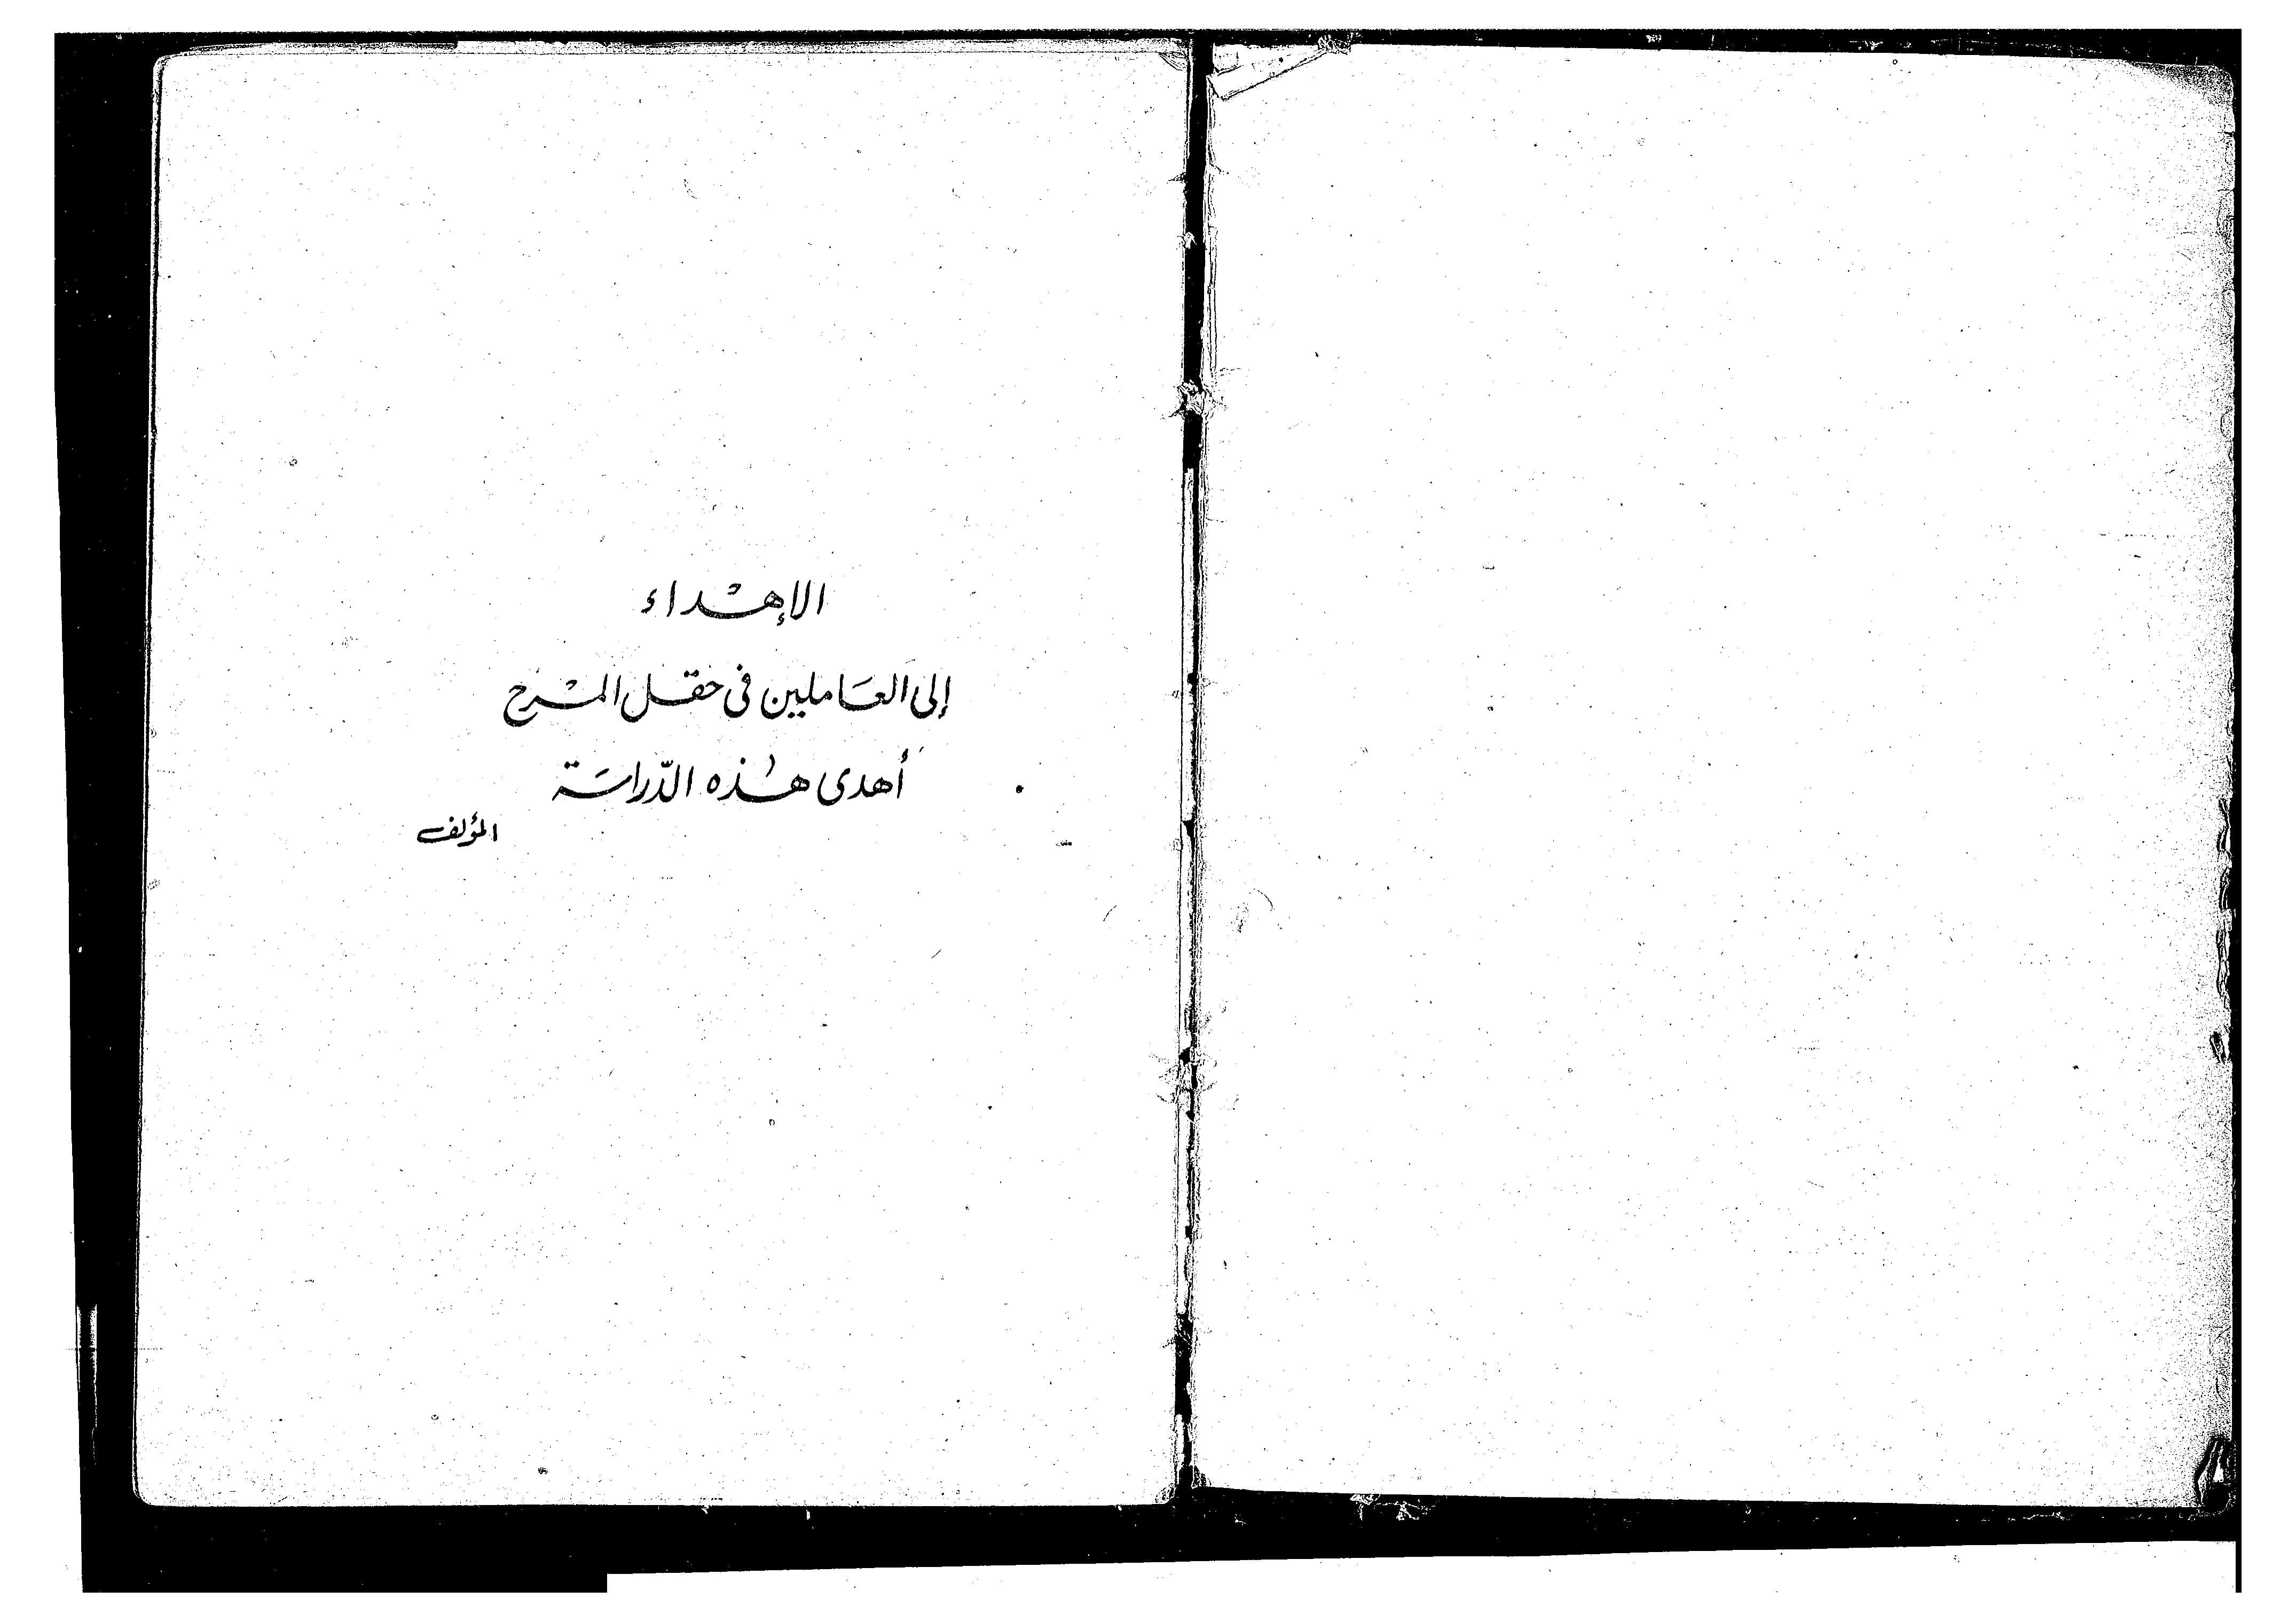 الإهْداء
إلى العَاملين فى حقل المسْرح
أهدى هٰذه الدّراسَة
المؤلف